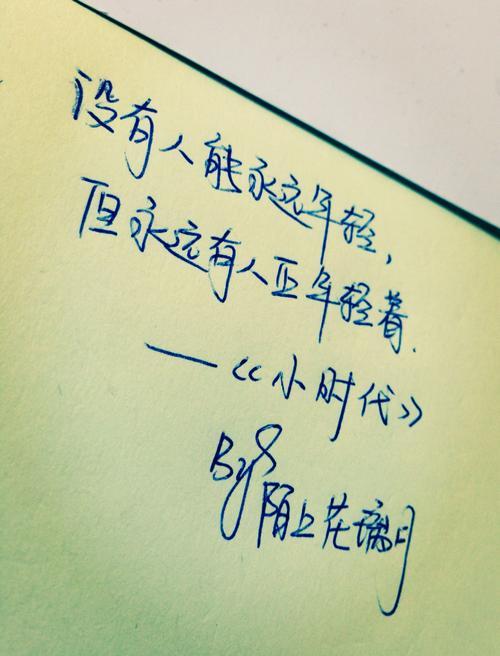 没有人能永远年轻，
但永远有人正年轻着.
——《小时代》
By 陌上花璃月